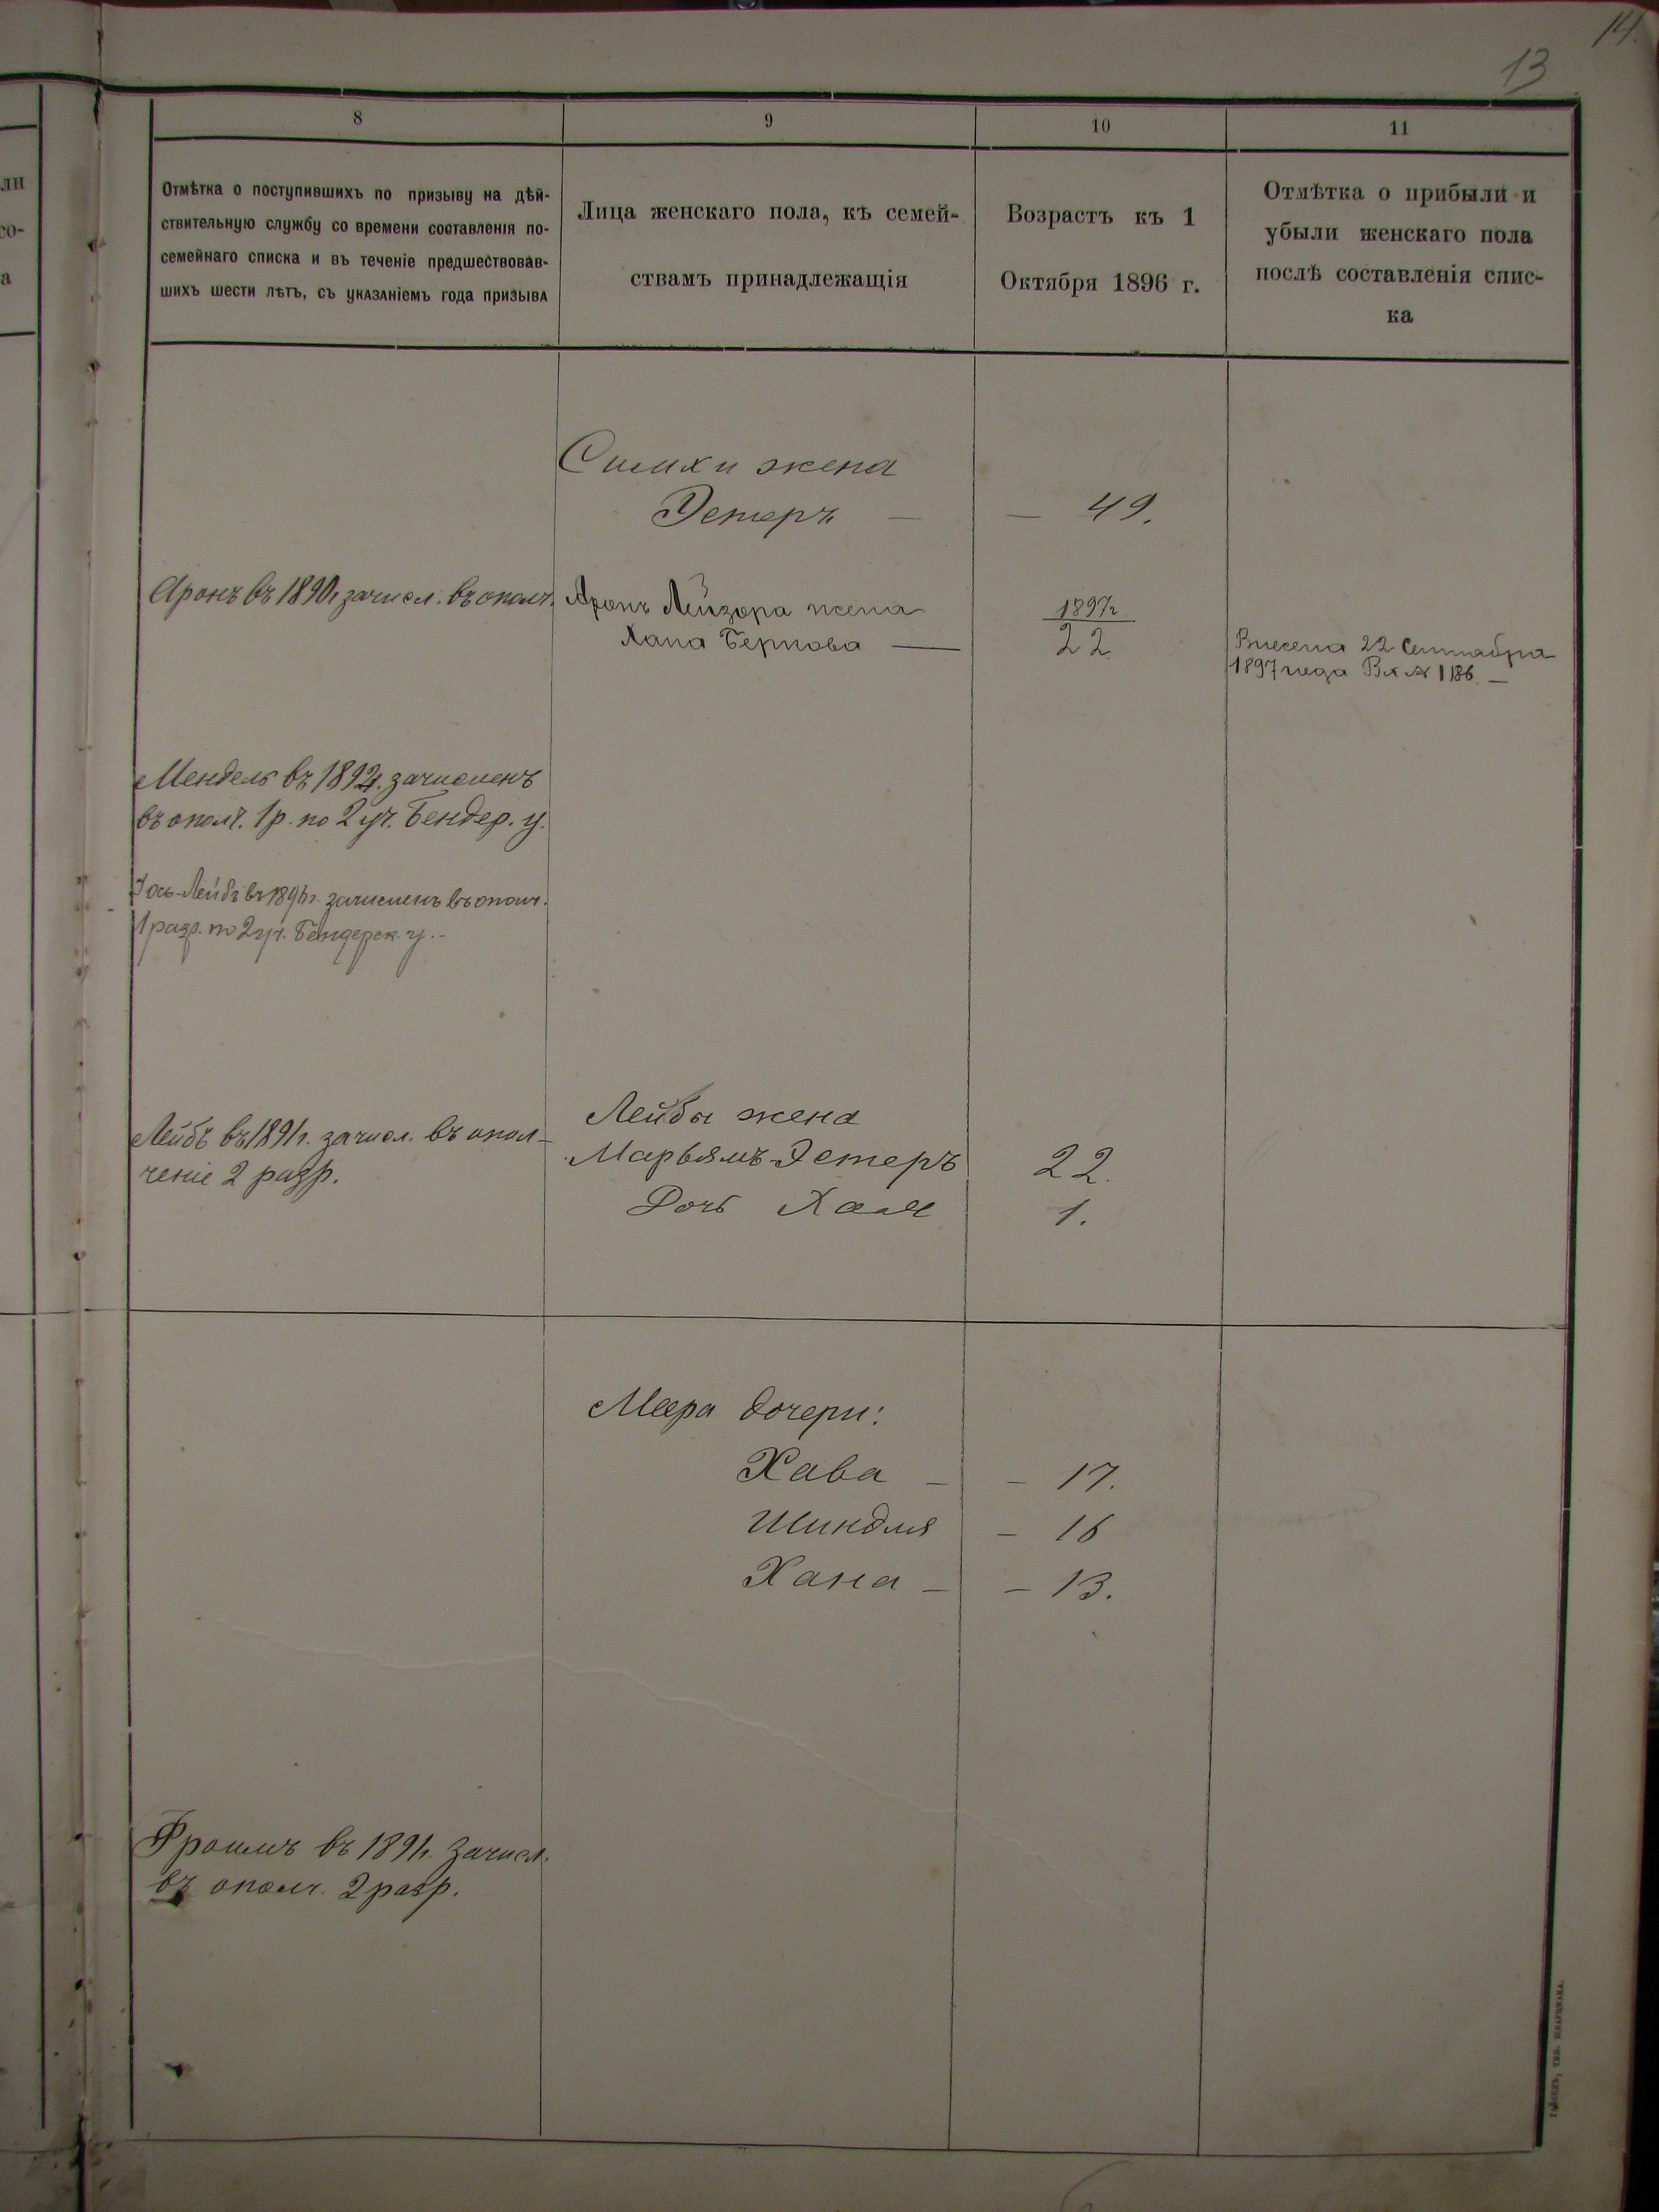 14.
13
8
9
10
11
Отмѣтка о поступившихъ по призыву на дѣй-
ствительную службу со времени составленія по-
семейнаго списка и въ теченіе предшествовав-
шихъ шести лѣтъ, съ указаніемъ года призыва
Лица женскаго пола, къ семей-
ствамъ принадлежащія
Возрастъ къ 1
Октября 1896 г.
Отмѣтка о прибыли и
убыли женскаго пола
послѣ составленія спис-
ка
Симхи жена
Эстеръ — — 49.
Аронъ въ 1890г зачисл. въ ополч.
Аронъ Лейзора жена
Хана Беркова —
1897г.
22
Внесена 22 Сентября
1897 года Вх № 1186. —
Мендель въ 1892г. зачисленъ
въ ополч. 1 р. по 2 уч. Бендер. у.
Іось-Лейбъ въ 1896г. зачисленъ въ ополч.
1 разр. по 2 уч. Бендерск. у. -
Лейбъ въ 1891г. зачисл. въ опол-
ченіе 2 разр.
Лейбы жена
Марьямъ-Эстеръ 22.
Дочь Хая 1.
Меера дочери:
Хава — — 17.
Шиндля — 16
Хана — — 13.
Фроимъ въ 1891г. зачисл.
въ ополч. 2 разр.